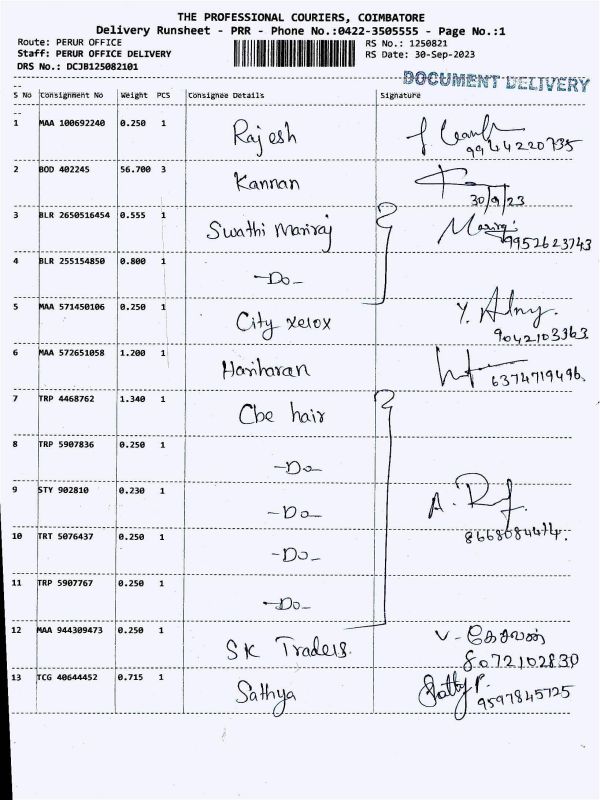 THE PROFESSIONAL COURIERS, COIMBATORE
Delivery Runsheet - PRR - Phone No.:0422-3505555 - Page No.:1
Route: PERUR OFFICE RS No.: 1250821
Staff: PERUR OFFICE DELIVERY RS Date: 30-Sep-2023
DRS No.: DCJB125082101
DOCUMENT DELIVERY
S No Consignment No Weight PCS Consignee Details Signature
1 MAA 100692240 0.250 1 Rajesh
9944220735
2 BOD 402245 56.700 3 Kannan
30/9/23
3 BLR 2650516454 0.555 1 Swathi Mariraj
9952623743
4 BLR 255154850 0.800 1 -Do-
5 MAA 571450106 0.250 1 City xerox
9042103363
6 MAA 572651058 1.200 1 Hariharan 6374719496
7 TRP 4468762 1.340 1 Cbe hair
8 TRP 5907836 0.250 1 -Do-
9 STY 902810 0.230 1 -Do-
10 TRT 5076437 0.250 1 -Do- 8668084414.
11 TRP 5907767 0.250 1 -Do-
12 MAA 944309473 0.250 1 SK Traders. V- கேசவன்
8072102830
13 TCG 40644452 0.715 1 Sathya 9597845725